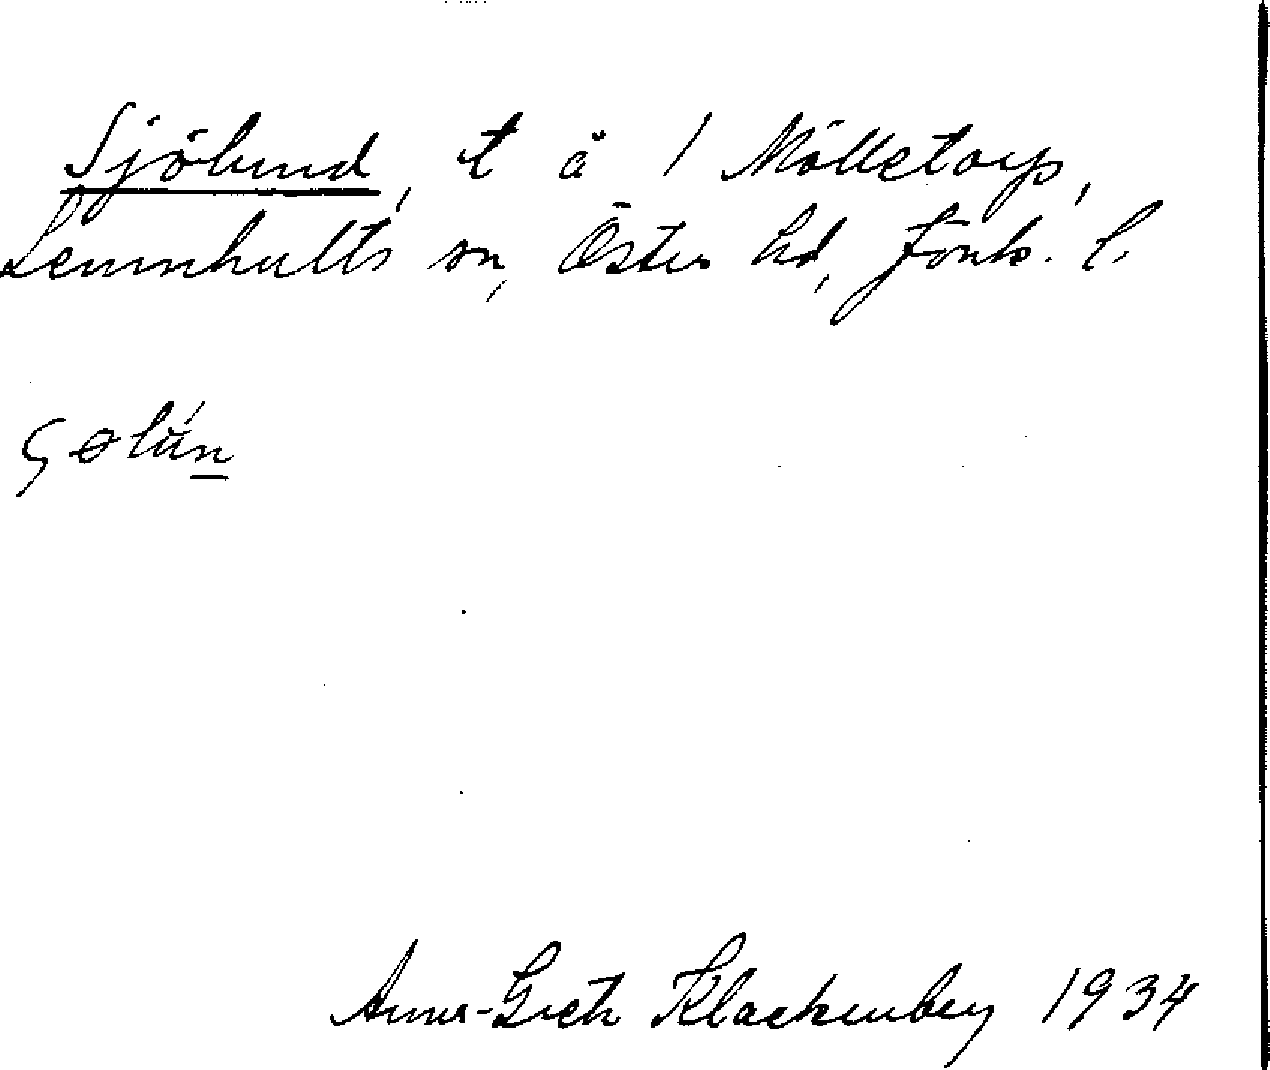 Sjölund, t å 1 Mölletorp,
Lemnhults sn, Östra hd, Jönk. l.
Anna-Greta Klackenberg 1934